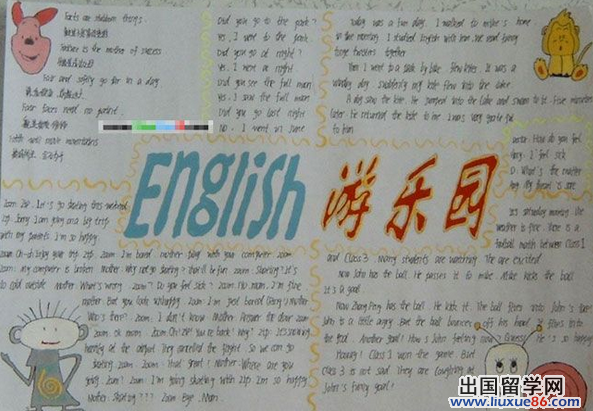 Facts are stubborn things.
Father is the mother of success
Fair and softly go far in a day
Fair faces need no paint.
Faith will move mountains
Did you go to the park?
Yes, I went to the park.
Did you go at night?
Yes, I went at night
Did you see the full moon
Yes, I saw the full moon
Did you go last night
No, I went in June
Today was a fun day. I walked to mike's home
in the morning. I studied English with him. We read funny
together
Then I went to a park by bike. Flew kites. It was a
windy day. Suddenly my kite flew into the lake
A dog saw the kite. He jumped into the lake and swam to the. Five minutes
later. He returned the kite to me. I was very grateful
to him
How do you feel
I feel sick
What's the matter
My throat is sore
English 游乐园
Zoom: Zip. Let's go skating this weekend
Zip: Sorry. I am going on a big trip
with my parents. I'm so happy
Zoom: Oh. Enjoy your trip. Zip. Zoom: I'm bored. Mother: play with your computer. Zoom
Zoom: my computer is broken. Mother: Why not go skating? That'll be fun. Zoom: Skating? It's
too cold outside. Mother: What's wrong. Zoom? Do you feel sick? Zoom: No mom. I'm fine
mother: But you look unhappy. Zoom: I'm just bored.
Who's there? Zoom: I don't know. Mother: Answer the door Zoom
Zoom: ok mom. Zoom: Oh! Zip! You're back! Hey! Zip: It's snowing
heavily at the airport. They cancelled the flight. So we can go
skating. Zoom: Zoom: That great! Mother: Where are you
going. Zoom? Zoom: I'm going skating with Zip. I'm so happy
Mother: Skating??? Zoom: Bye. Mum.
It's Saturday morning. the
weather is fine. There is a
football match between Class 1
and Class 3. Many students are watching. They are excited
Now John has the ball. He passes it to Mike. Mike kicks the ball
It's a goal
Now Zhang Peng has the ball. He kicks it. The ball flies into John's face
John is a little angry. But the ball bounces off his head. It flies into
the goal. Another goal! How is John feeling now?
Hooray! Class 1 won the game. But
Class 3 is not sad. They are laughing at
John's funny goal!
出国留学网
www.liuxue86.com